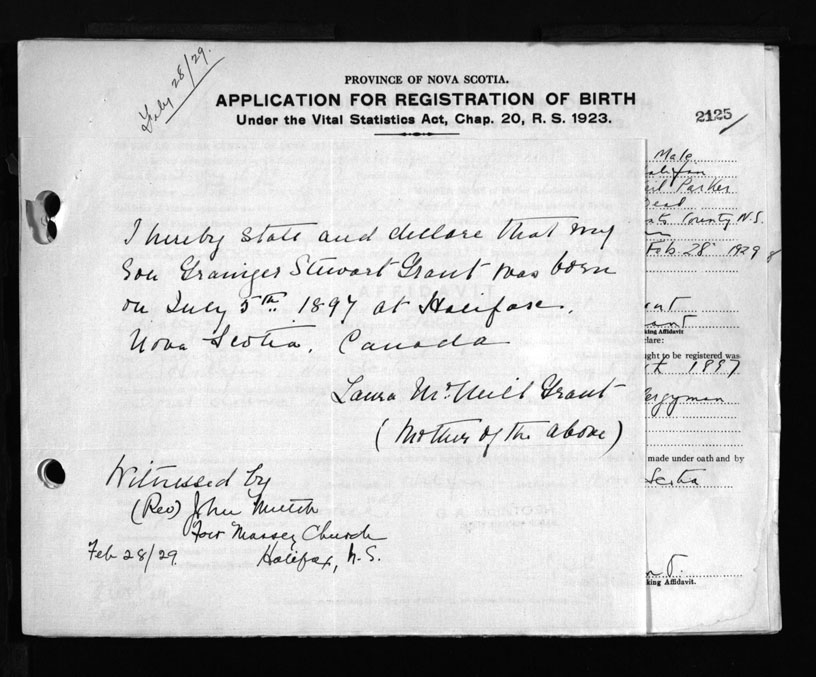 Feby 28/29.
PROVINCE OF NOVA SCOTIA.
APPLICATION FOR REGISTRATION OF BIRTH
Under the Vital Statistics Act, Chap. 20, R. S. 1923.
2125
I hereby state and declare that my
Son Grainger Stewart Grant was born
on July 5th. 1897 at Halifax.
Nova Scotia. Canada
Laura McNeill Grant
(Mother of the above)
Witnessed by
(Rev) John Mutch
Fort Massey Church
Feb 28/29. Halifax, N.S.
Male
Parker
County N.S.
Feb. 28 1929
king Affidavit
lare:
ght to be registered was
1897
ergyman
made under oath and by
Scotia
king Affidavit.